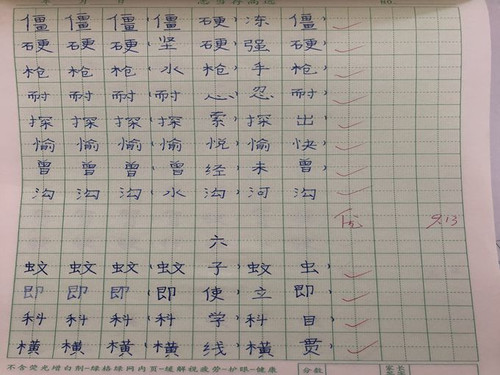 年 月 日
僵 僵 僵 僵 硬, 冻 僵
硬 硬 硬 坚 硬, 强 硬
枪 枪 枪 水 枪, 手 枪
耐 耐 耐 耐 心, 忍 耐
探 探 探 探 索, 探 出
愉 愉 愉 愉 悦, 愉 快
曾 曾 曾 曾 经, 未 曾
沟 沟 沟 水 沟, 河 沟
优 9.13
六
蚊 蚊 蚊 蚊 子, 蚊 虫
即 即 即 即 使, 立 即
科 科 科 科 学, 科 目
横 横 横 横 线, 横 贯
不含荧光增白剂-绿格绿网内页-缓解视疲劳-护眼-健康 分数